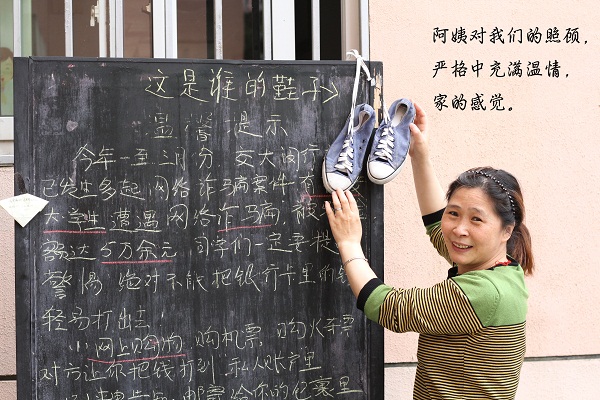 这是谁的鞋子→
温馨提示
今年一至三月份，交大闵行
已发生多起网络诈骗案件，有
大学生遭遇网络诈骗，被
额达5万余元，同学们一定要提
警惕，绝对不能把银行卡里的钱
轻易打出去！
1、网上购物、购机票、购火车票
对方让你把钱打到私人账户里
邮寄给你的包裹里
阿姨对我们的照顾，
严格中充满温情，
家的感觉。